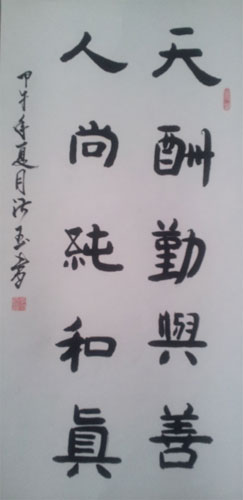 天酬勤與善
人尚純和真
甲午年夏月